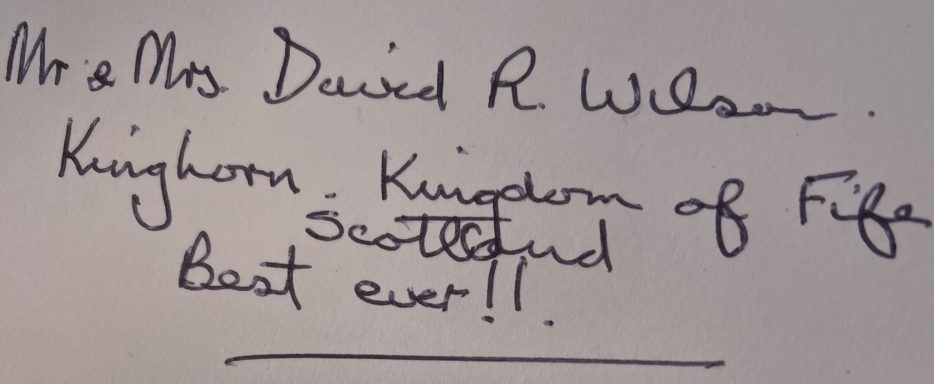 Mr & Mrs. David R. Wilson.
Kinghorn. Kingdom of Fife
Scotland
Best ever!!.